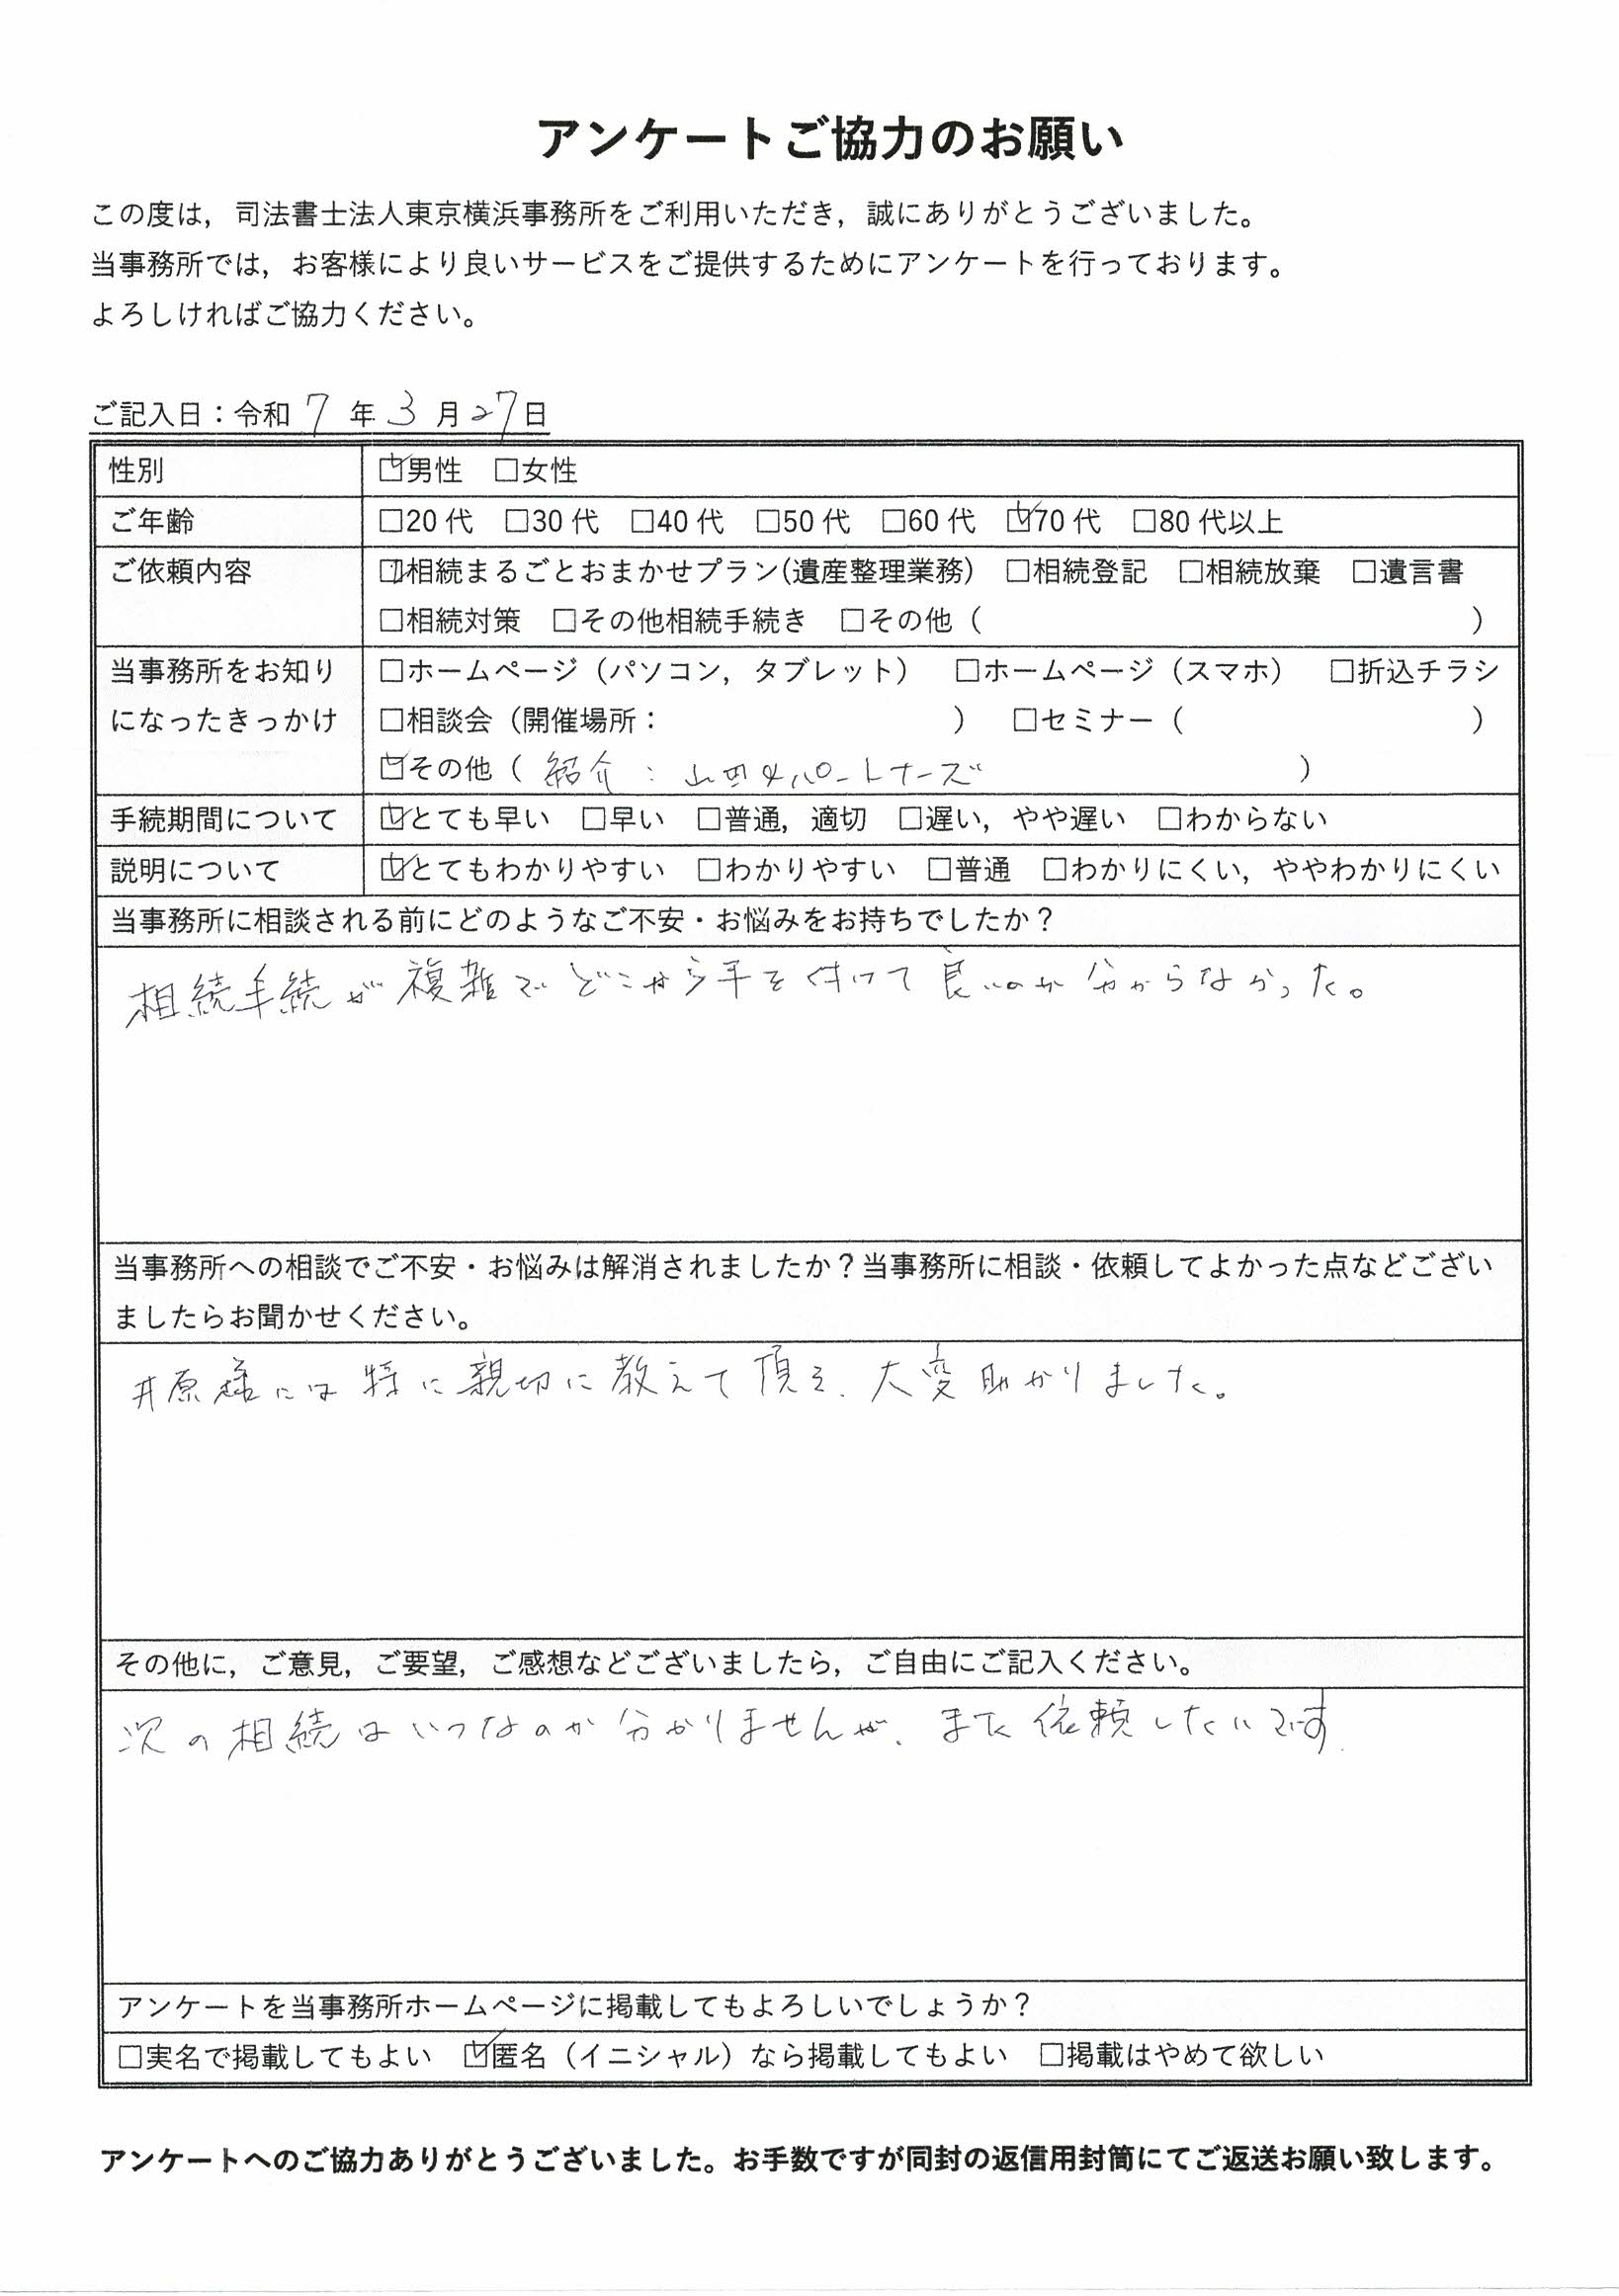 アンケートご協力のお願い
この度は，司法書士法人東京横浜事務所をご利用いただき，誠にありがとうございました。
当事務所では，お客様により良いサービスをご提供するためにアンケートを行っております。
よろしければご協力ください。
ご記入日：令和 7 年 3 月 27日
性別 ☑男性 □女性
ご年齢 □20代 □30代 □40代 □50代 □60代 ☑70代 □80代以上
ご依頼内容 ☑相続まるごとおまかせプラン(遺産整理業務) □相続登記 □相続放棄 □遺言書
□相続対策 □その他相続手続き □その他（ ）
当事務所をお知り □ホームページ（パソコン，タブレット） □ホームページ（スマホ） □折込チラシ
になったきっかけ □相談会（開催場所： ） □セミナー（ ）
☑その他（ 紹介：山田&パートナーズ ）
手続期間について ☑とても早い □早い □普通，適切 □遅い，やや遅い □わからない
説明について ☑とてもわかりやすい □わかりやすい □普通 □わかりにくい，ややわかりにくい
当事務所に相談される前にどのようなご不安・お悩みをお持ちでしたか？
相続手続が複雑でどこから手を付けて良いのか分からなかった。
当事務所への相談でご不安・お悩みは解消されましたか？当事務所に相談・依頼してよかった点などござい
ましたらお聞かせください。
井原様には特に親切に教えて頂き、大変助かりました。
その他に，ご意見，ご要望，ご感想などございましたら，ご自由にご記入ください。
次の相続はいつなのか分かりませんが、また依頼したいです
アンケートを当事務所ホームページに掲載してもよろしいでしょうか？
□実名で掲載してもよい ☑匿名（イニシャル）なら掲載してもよい □掲載はやめて欲しい
アンケートへのご協力ありがとうございました。お手数ですが同封の返信用封筒にてご返送お願い致します。